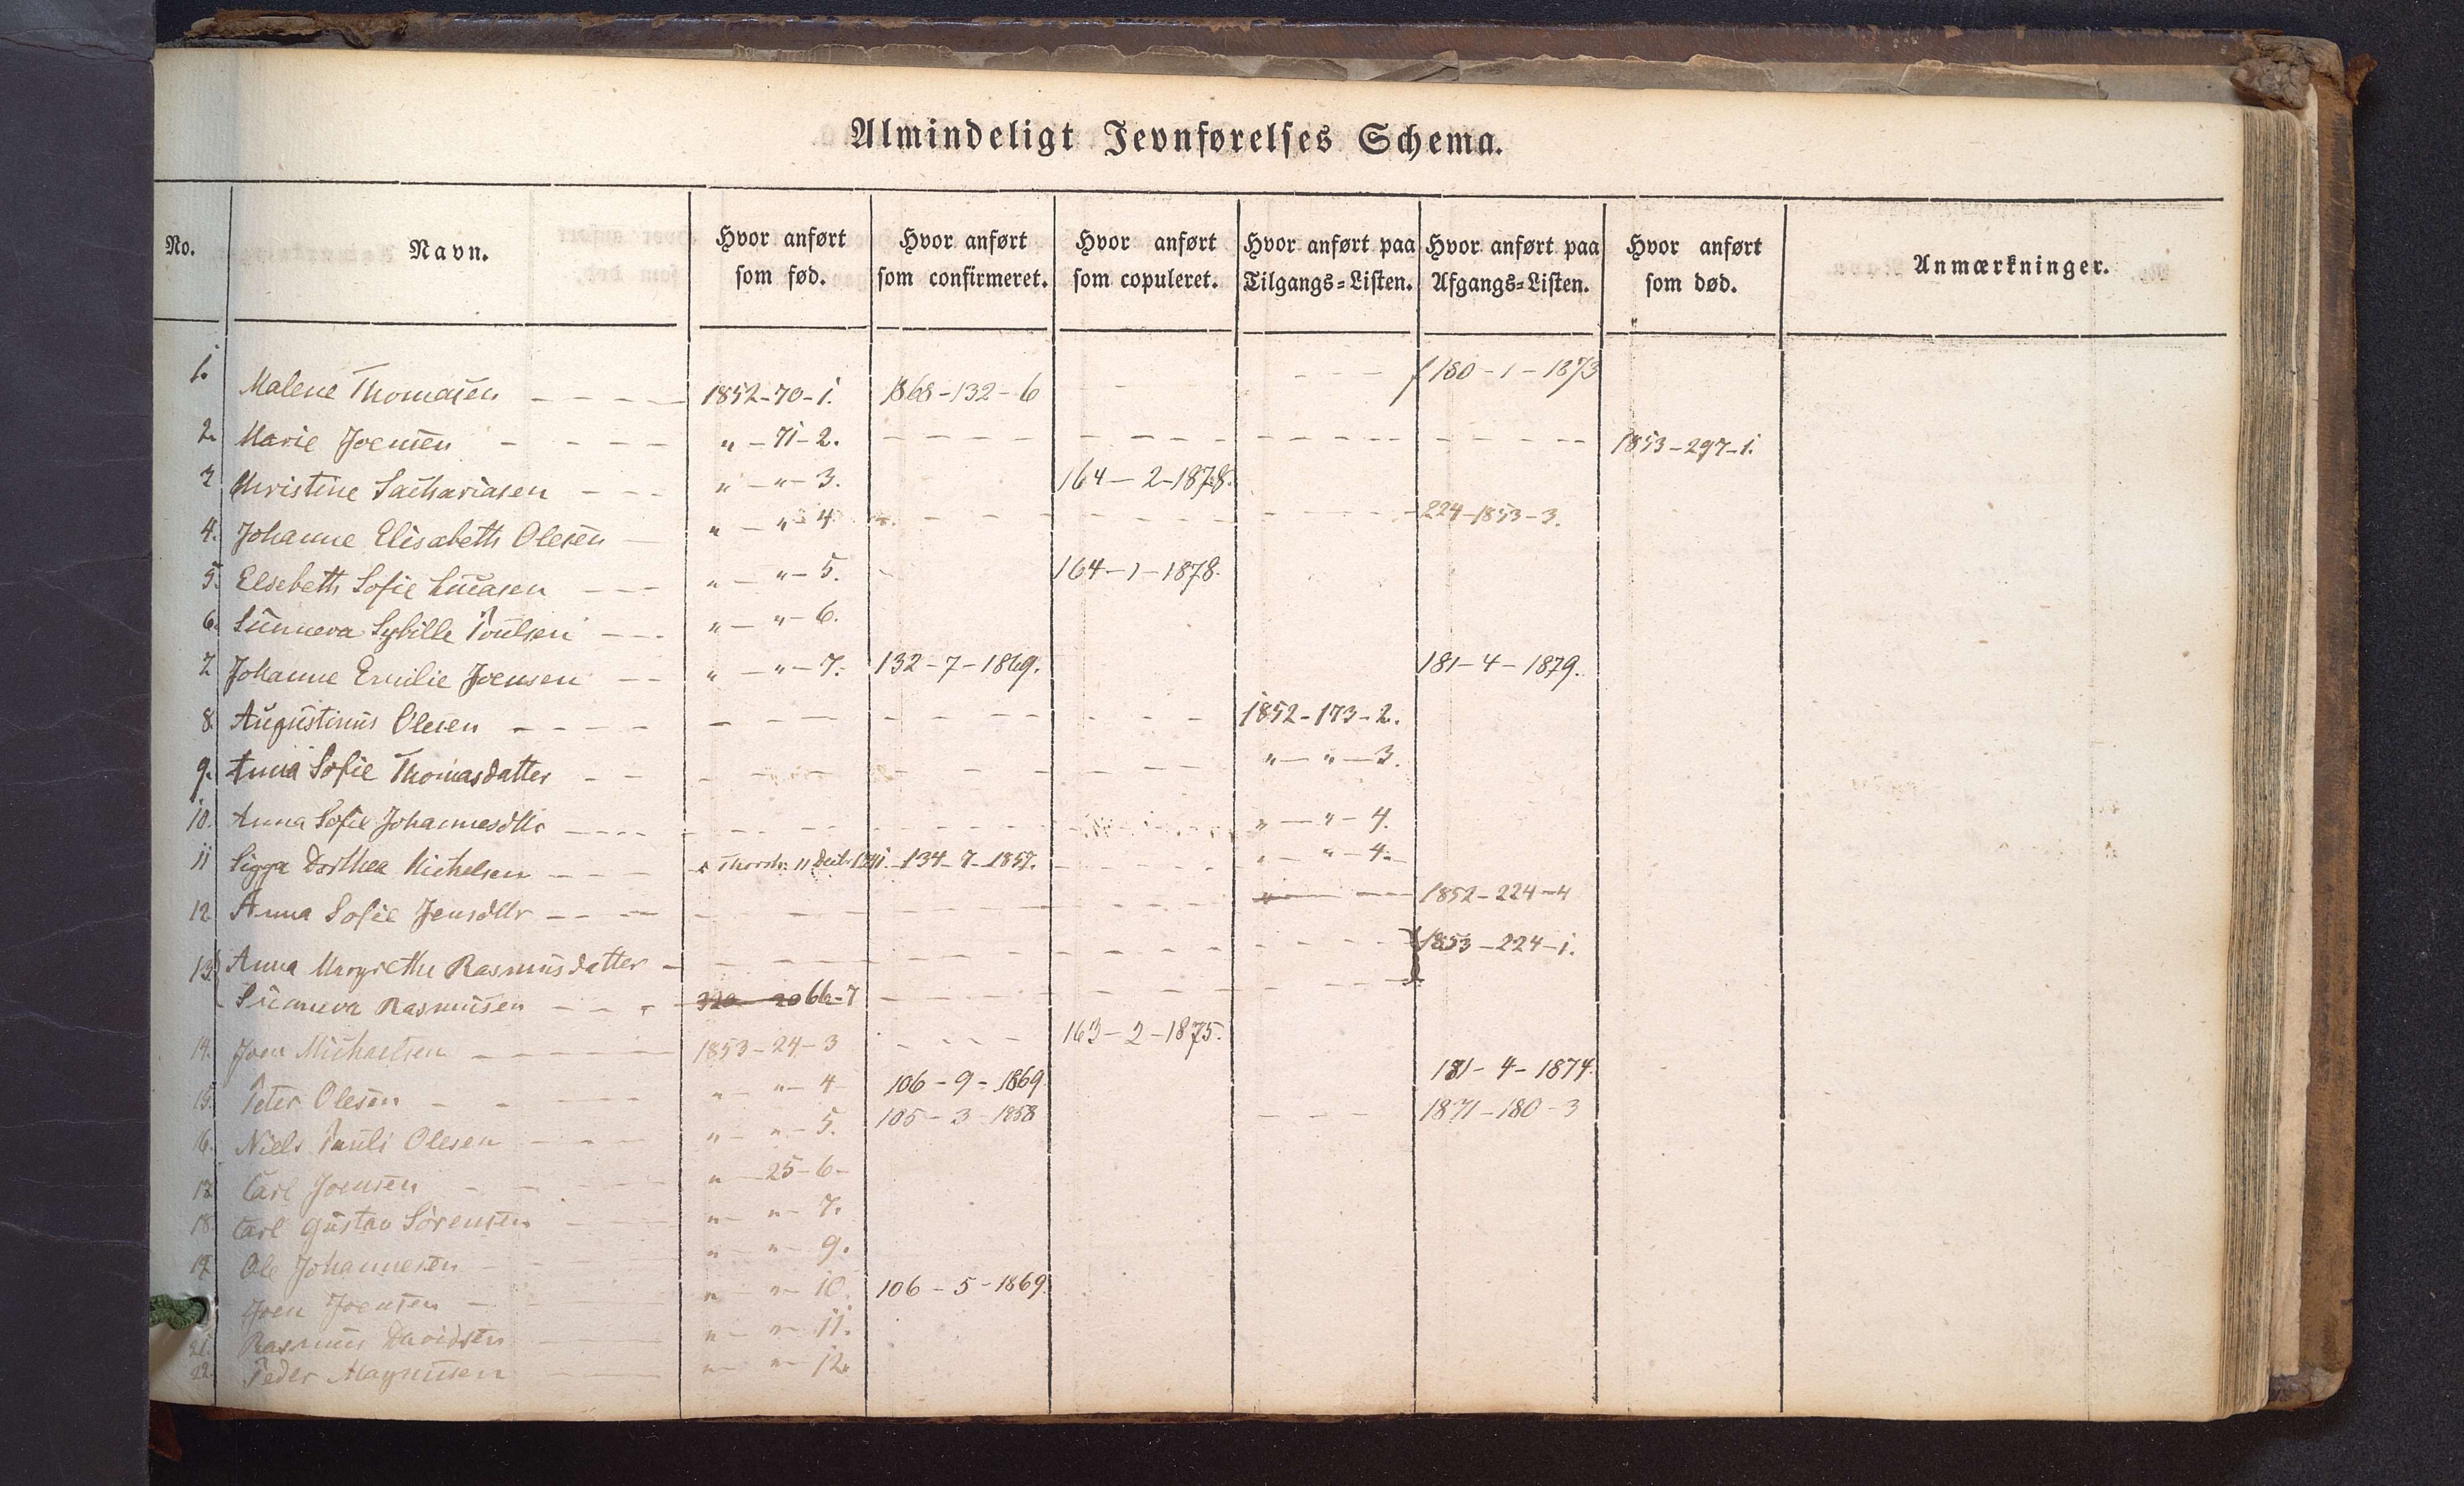 Almindeligt Jevnførelses Schema.
No. Navn. Hvor anført som fød. Hvor anført som confirmeret. Hvor anført som copuleret. Hvor anført paa Tilgangs-Listen. Hvor anført paa Afgangs-Listen. Hvor anført som død. Anmærkninger.
1. Malene Thomasen — — — — 1852-70-1. 1868-132-6 — — — — — 180-1-1873
2. Marie Joensen — — — — " — 71-2. — — — — — — — — — — — — — — — — 1853-297-1.
3 Christine Sachariasen — — — " — " — 3. 164 — 2-1878.
4. Johanne Elisabeth Olesen — " — " — 4. — — — — — — — — — — — 224-1853-3.
5. Elsebeth Sofie Lucasen — — — " — " — 5. 164-1-1878.
6. Sunneva Sybille Poulsen — — " — " — 6.
7 Johanne Emilie Joensen — — " — " — 7. 132-7-1869. 181-4-1879.
8. Augustinus Olesen — — — — — — — — — — — — — — 1852-173-2.
9. Anna Sofie Thomasdatter — — — — — — — — — — — " — " — 3.
10. Anna Sofie Johannesdttr — — — — — — — — — — — " — " — 4.
11 Sigga Dorthea Michelsen — — — 11 134-7-1857. — — — — " — " — 4.
12. Anna Sofie Jensdttr — — — — — — — — — — — " — — 1852-224-4
13. Anna Margrethe Rasmusdatter — — — — — — — — — — — — — 1853-224-1.
Sunneva Rasmussen — — — 66-7 — — — — — — — — — —
14. Joen Michaelsen — — — — 1853-24-3 — — — — 163-2-1875.
15. Peter Olesen — — — — " — " — 4 106-9-1869 181-4-1874.
16. Niels Pauli Olesen — — — " — " — 5. 105-3-1858 — — — 1871-180-3
17. Carl Joensen — — — — " — 25-6-
18. Carl Gustav Sørensen — — " — " — 7.
19. Ole Johannesen — — — " — " — 9.
Joen Joensen — — — " — " — 10. 106-5-1869
21. Rasmus Davidsen — — " — " — 11.
22. Peder Magnusen — — " — " — 12.